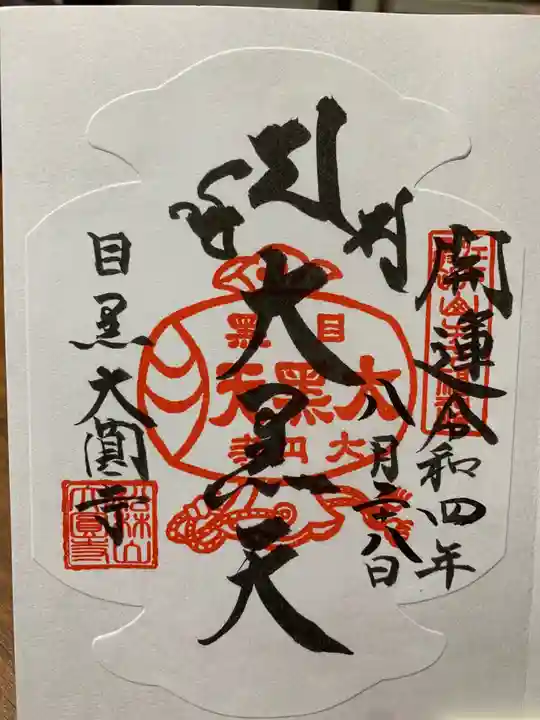 開運
令和四年
八月二十八日
大黒天
目黒大圓寺
目黒
大黒天
大円寺
松林山
大圓寺